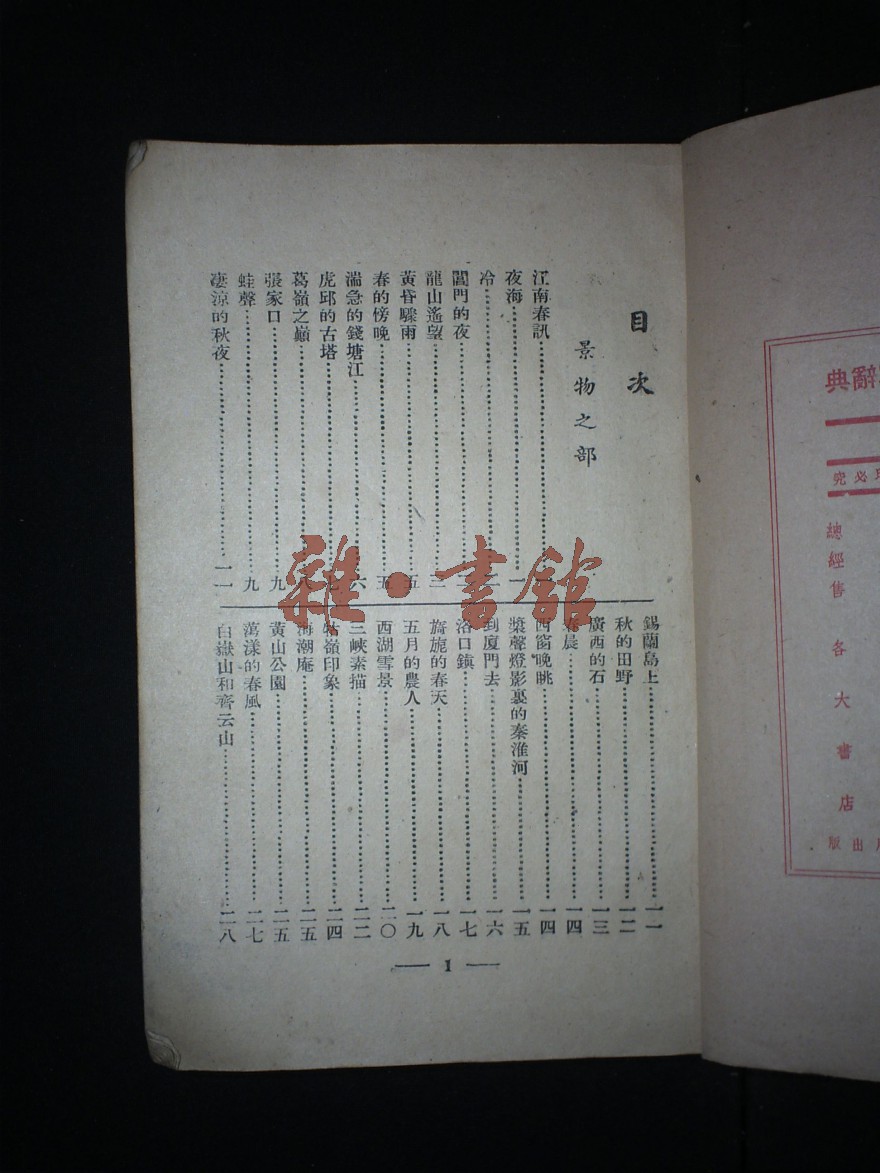 目次
景物之部
江南春訊
夜海一
冷
閶門的夜
龍山遙望三
黃昏驟雨五
春的傍晚五
湍急的錢塘江六
虎邱的古塔七
葛嶺之巔八
張家口九
蛙聲九
凄涼的秋夜一一
錫蘭島上一一
秋的田野一二
廣西的石一三
春晨一四
西窗晚眺一四
槳聲燈影裏的秦淮河一五
到廈門去一六
洛口鎮一七
旖旎的春天一八
五月的農人一九
西湖雪景二〇
三峽素描二二
牯嶺印象二四
海潮庵二五
黃山公園二五
萬漾的春風二七
白嶽山和齊云山二八
1
雜·書館
辭典
必究
總經售各大書店
出版